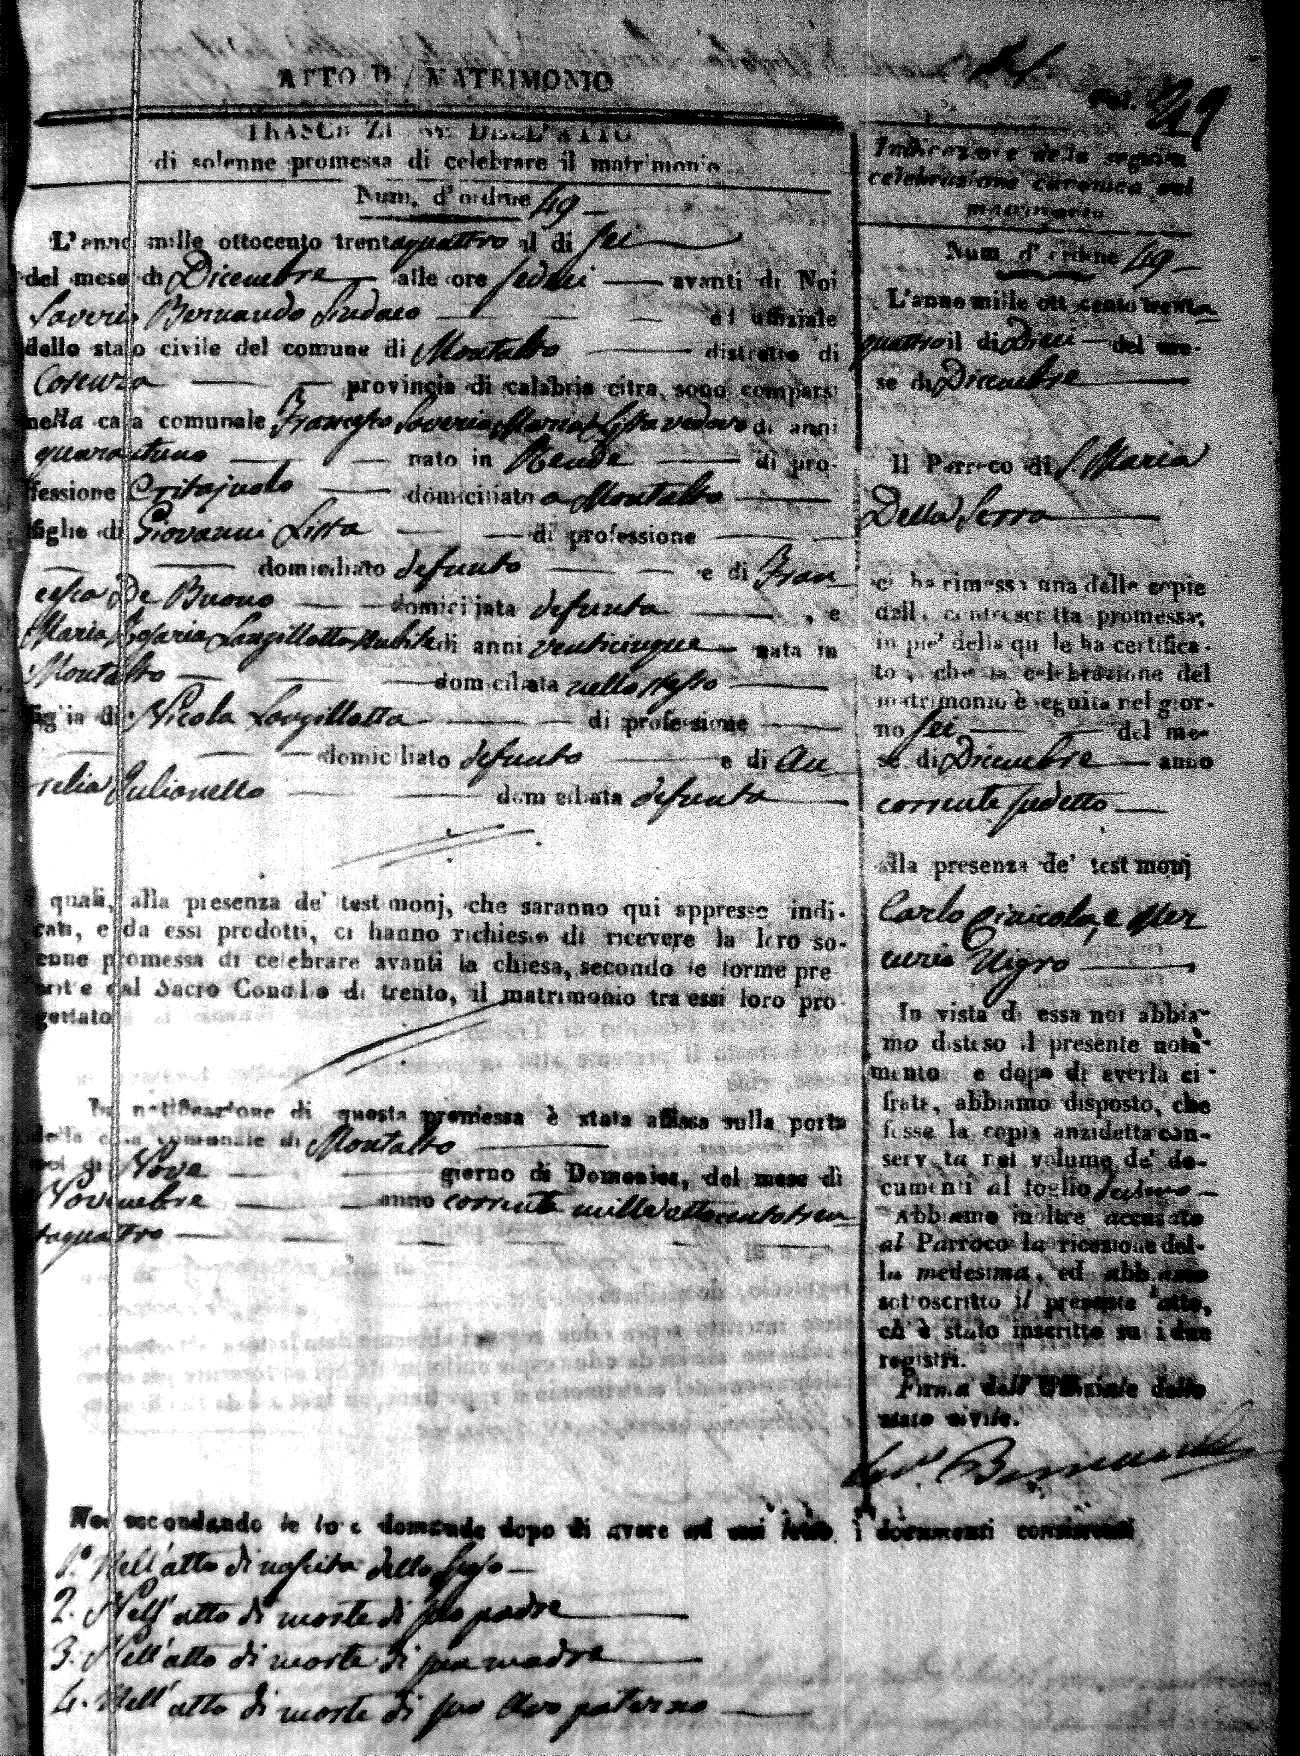 ATTO DI MATRIMONIO
Fol. 49
TRASCRIZIONE DELL'ATTO
di solenne promessa di celebrare il matrimonio
Num. d'ordine 49
L'anno mille ottocento trentaquattro il di sei
del mese di Dicembre alle ore sedeci avanti di Noi
Saverio Bernardo Sindaco ed uffiziale
dello stato civile del comune di Montalto distretto di
Cosenza provincia di calabria citra, sono comparsi
nella casa comunale Francesco Saverio Maria Lissa vedovo di anni
quarantuno nato in Rende di pro-
fessione domiciliato a Montalto
figlio di Giovanni Lissa di professione
domiciliato defunto e di Fran
cesca De Buono domiciliata defunta , e
Maria Rosaria Langillotta nubile di anni venticinque nata in
Montalto domiciliata nello stesso
figlia di Nicola Langillotta di professione
domiciliato defunto e di Au
relia Iulianello domiciliata defunta
i quali, alla presenza de' testimonj, che saranno qui appresso indi-
cati, e da essi prodotti, ci hanno richiesto di ricevere la loro so-
lenne promessa di celebrare avanti la chiesa, secondo le forme pre
scritte dal Sacro Concilio di trento, il matrimonio tra essi loro pro
gettato
La notificazione di questa promessa è stata affissa sulla porta
della casa comunale di Montalto
nel di Nove giorno di Domenica, del mese di
Novembre anno corrente mille ottocento tren
taquattro
Indicazione della seguita
celebrazione canonica del
matrimonio
Num. d'ordine 49
L'anno mille ottocento trenta
quattro il di Dieci del me-
se di Dicembre
Il Parroco di S. Maria
Della Serra
ci ha rimessa una delle copie
della controscritta promessa;
in piè della quale ha certifica-
to, che la celebrazione del
matrimonio è seguita nel gior-
no sei del me-
se di Dicembre anno
corrente sudetto
alla presenza de' testimonj
Carlo e Mer
curio Nigro
In vista di essa noi abbia-
mo disteso il presente nota-
mento e dopo di averla ci-
frata, abbiamo disposto, che
fosse la copia anzidetta con-
servata nel volume de' do-
cumenti al foglio
Abbiamo inoltre accusato
al Parroco la ricezione del-
la medesima, ed abbiamo
sottoscritto il presente atto,
ch'è stato inscritto su i due
registri.
Firma dell'Uffiziale dello
stato civile.
Sav. Bernardo
Noi secondando le loro domande dopo di avere ad essi letto i documenti consistenti
1.° Nell'atto di nascita dello sposo
2. Nell'atto di morte di suo padre
3. Nell'atto di morte di sua madre
4. Nell'atto di morte di suo Avo paterno